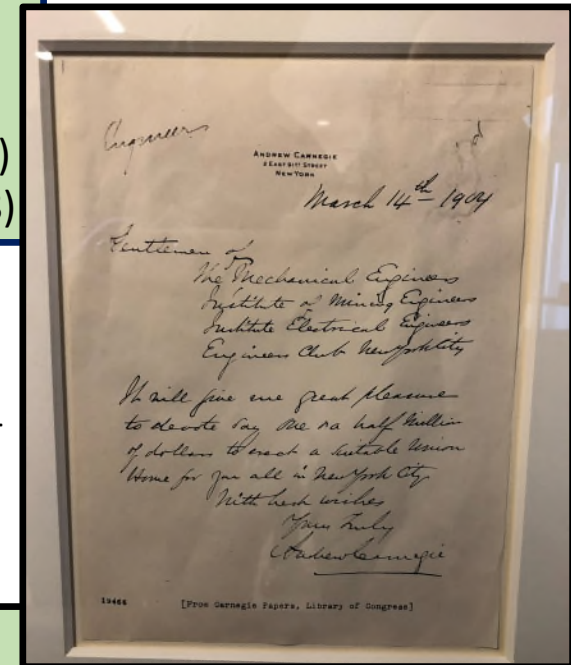 )
)
Engineers
ANDREW CARNEGIE
2 EAST 91ST STREET
NEW YORK
March 14th 1904
Gentlemen of
The Mechanical Engineers
Institute of Mining Engineers
Institute Electrical Engineers
Engineers Club New York City
It will give me great pleasure
to devote say one & a half million
of dollars to erect a suitable Union
Home for you all in New York City
With best wishes
Yours Truly
Andrew Carnegie
19466
[From Carnegie Papers, Library of Congress]